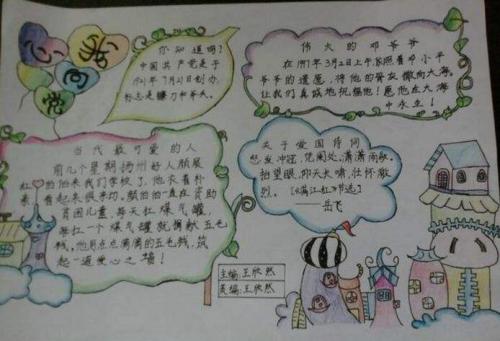 你知道吗?
中国共产党是于
1921年7月23日创办,
标志是镰刀和斧头。
伟大的邓爷爷
在1997年3月2日上午,家照着邓小平
爷爷的遗愿,将他的骨灰撒向大海。
让我们真诚地祝福他!愿他在大海
中永生!
当代最可爱的人
前几个星期扬州好人颜展
红伯伯来我们学校了,他衣着朴
素,看起来很亲切。颜伯伯一直在资助
贫困儿童,每天扛煤气罐,
每扛一个煤气罐就捐献五毛
钱。他用点点滴滴的五毛钱,筑
起一道爱心之墙!
关于爱国诗词
怒发冲冠,凭阑处,潇潇雨歇,
抬望眼,仰天长啸,壮怀激
烈。《满江红》节选
——岳飞
主编:王欣然
美编:王欣然